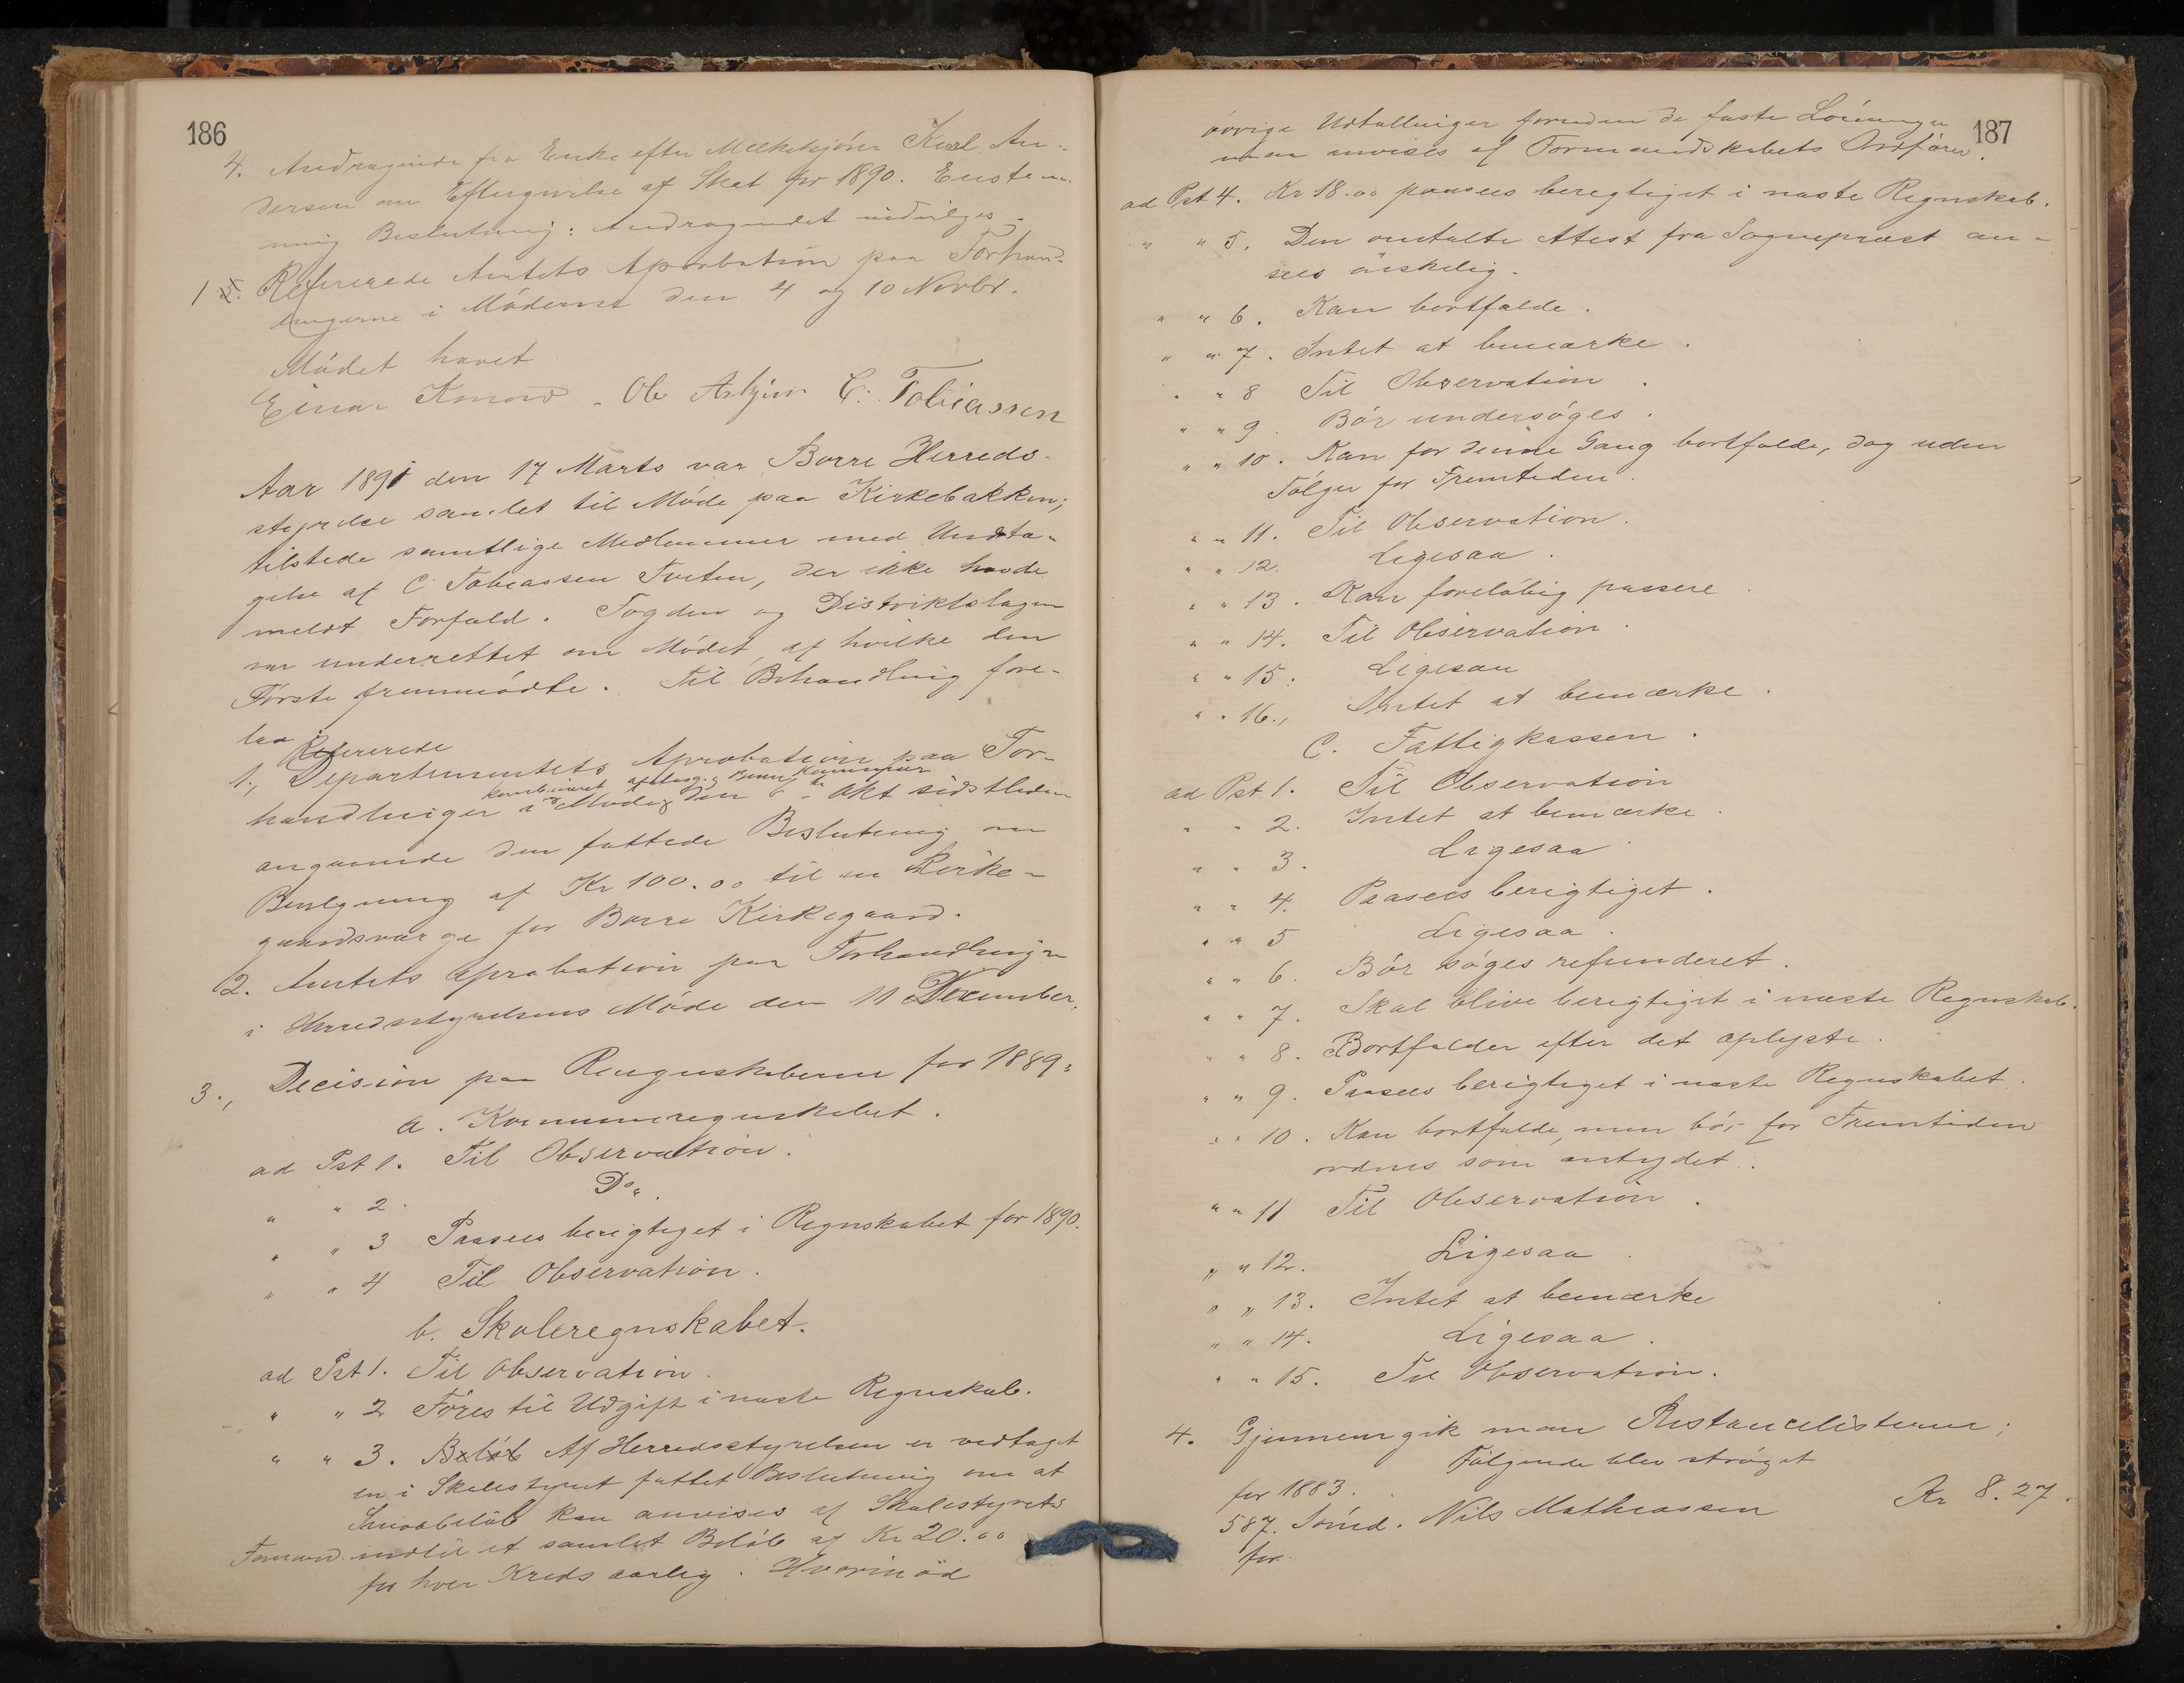 186
4. Andragende fra Enke efter Melkekjører Karl An-
dersen om Eftergivelse af Skat for 1890. Enstem-
mig Beslutning: Andragendet indvilges.
1 5. Refererede Amtets Aprobation paa Forhand-
lingerne i Møderne den 4 og 10 Novbr.
Mødet hævet
Einar Konow Ole C. Tobiassen
Aar 1891 den 17 Marts var Borre Herreds-
styrelse samlet til Møde paa Kirkebakken;
tilstede samtlige Medlemmer med Undta-
gelse af C. Tobiassen Tveten, der ikke havde
meldt Forfald. Fogden og Distriktslægen
var underrettet om Mødet, af hvilke den
Første fremmødte. Til Behandling fore-
laa
Refererede
1., Departementets Aprobation paa For-
handlinger i Møde den 6 Okt sidstleden
angaaende den fattede Beslutning om
Bevilgning af Kr 100.00 til en Kirke-
gaardsværge for Borre Kirkegaard.
2. Amtets Aprobation paa Forhandlingen
i Herredsstyrelsens Møde den 11 December.
3., Decision paa Rengnskaberne for 1889:
a. Kommuneregnskabet.
ad Pst 1. Til Observation.
" " 2. Do.
" " 3 Paasees berigtiget i Regnskabet for 1890.
" " 4 Til Observation.
b. Skoleregnskabet.
ad Pst 1. Til Observation.
" " 2 Føres til Udgift i næste Regnskab.
" " 3. Beløb Af Herredsstyrelsen er vedtaget
en i Skolestyret fattet Beslutning om at
Smaabeløb kan anvises af Skolestyrets
Formand indtil et samlet Beløb af Kr 20.00
for hver Kreds aarlig. Hvorimod
187
øvrige Udtællinger foruden de faste Lønninger
maa anvises af Formandskabets Ordfører.
ad Pst 4. Kr 18.00 paasees beregtiget i næste Regnskab.
" " 5. Den omtalte Attest fra Sogneprest an-
sees ønskelig.
" " 6. Kan bortfalde.
" " 7. Intet at bemærke.
" " 8 Til Observation.
" " 9. Bør undersøges.
" " 10. Kan for denne Gang bortfalde, dog uden
Følger for Fremtiden.
" " 11. Til Observation.
" " 12. Ligesaa.
" " 13. Kan foreløbig passere.
" " 14. Til Observation.
" " 15. Ligesaa
" " 16., Intet at bemærke.
C. Fattigkassen.
ad Pst 1. Til Observation
" " 2. Intet at bemærke.
" " 3. Ligesaa
" " 4. Paasees berigtiget.
" " 5 Ligesaa.
" " 6. Bør søges refunderet.
" " 7. Skal blive berigtiget i næste Regnskab.
" " 8. Bortfalder efter det oplyste.
" " 9. Paasees berigtiget i næste Regnskabet.
" " 10. Kan bortfalde, men bør for Fremtiden
ordnes som antydet.
" " 11 Til Observation.
" " 12. Ligesaa.
" " 13. Intet at bemærke
" " 14. Ligesaa.
" " 15. Til Observation.
4. Gjennemgik man Restancelisterne;
Følgende blev strøget
for 1883.
587. Nils Mathiassen Kr 8.27.
for